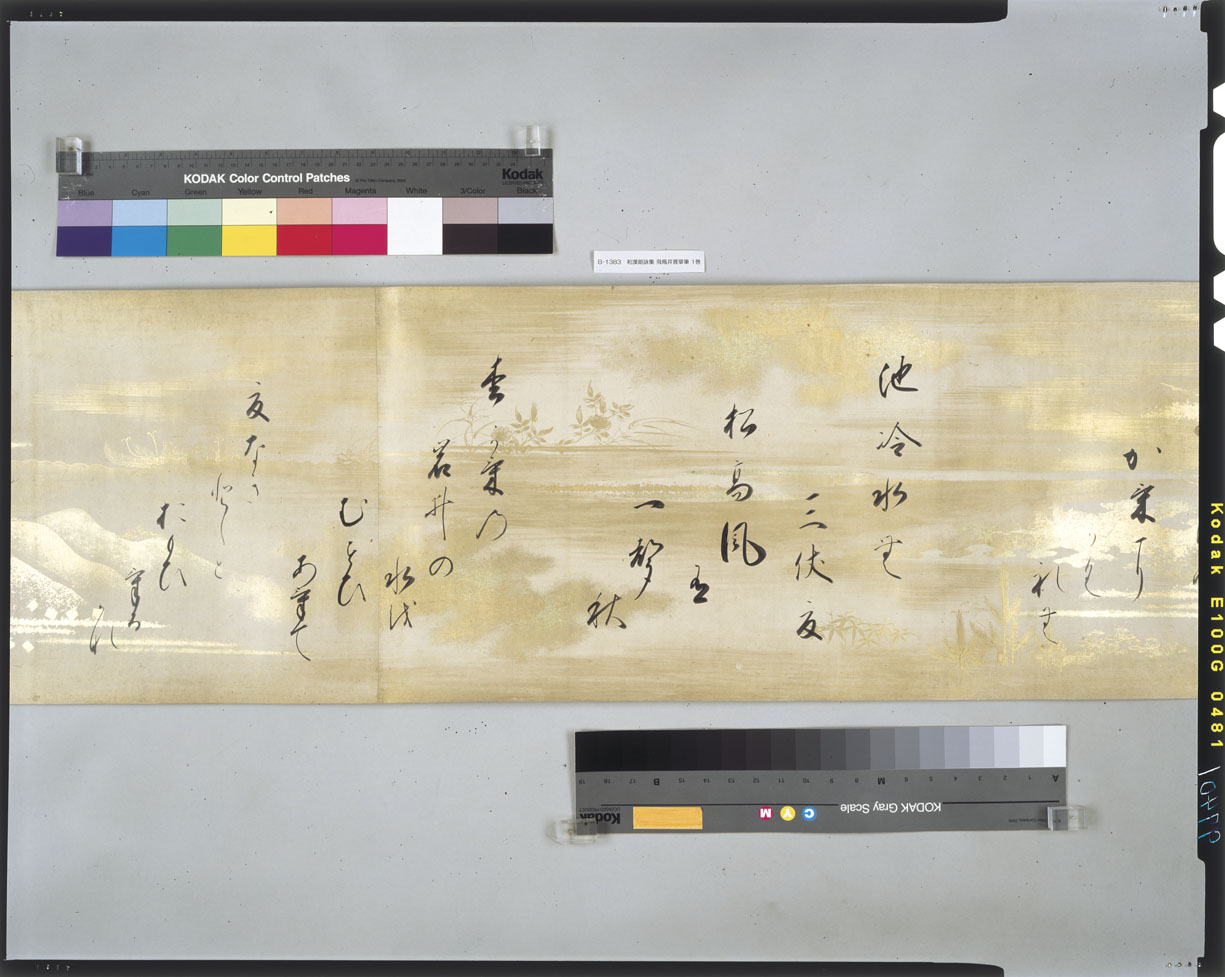 KODAK Color Control Patches
Kodak
Blue Cyan Green Yellow Red Magenta White 3/Color Black
B-1383 和漢朗詠集 飛鳥井雅章筆 1巻
池冷水無
三伏夏
松高風
有
一聲秋
岩井の
水
むすひ
あけて
夏なき
としと
おもひ
KODAK Gray Scale
Kodak
A 1 2 3 4 5 6 M 8 9 10 11 12 13 14 15 B 17 18 19
C Y M
Kodak E100G 0481